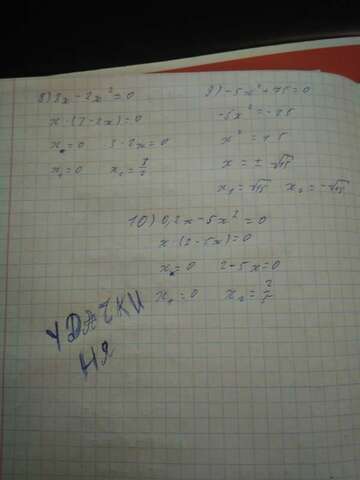 8) 3x - 2x² = 0
x · (3 - 2x) = 0
x = 0 3 - 2x = 0
x₁ = 0 x₂ = 3/2
9) -5x² + 75 = 0
-5x² = -75
x² = 15
x = ± √15
x₁ = √15 x₂ = -√15
10) 0,2x - 5x² = 0
x · (2 - 5x) = 0
x = 0 2 - 5x = 0
x₁ = 0 x₂ = 2/5
УДАЧКИ
НЯ